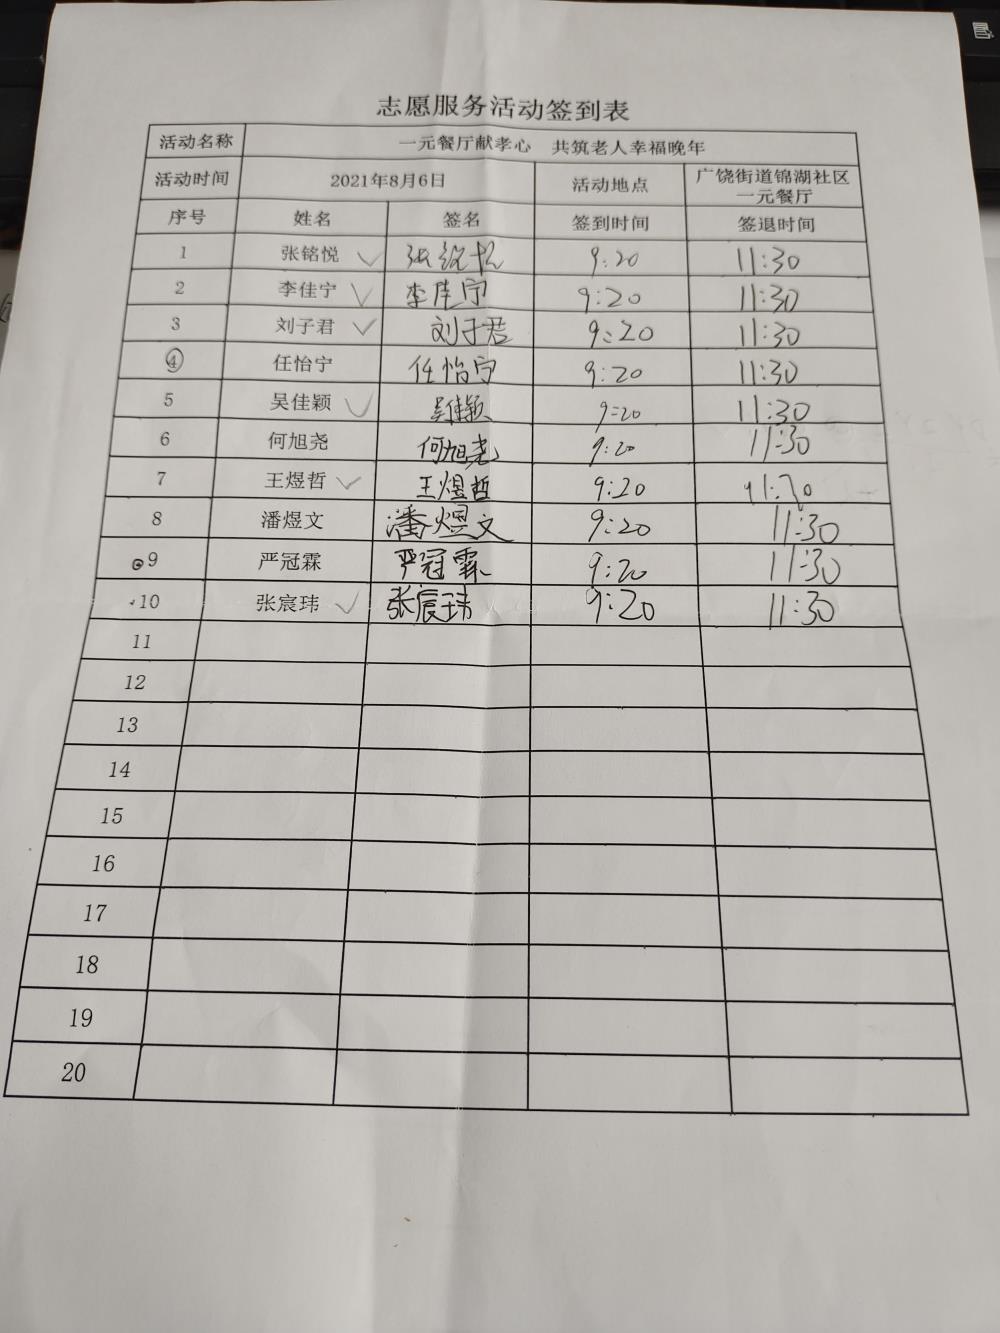 志愿服务活动签到表
活动名称 一元餐厅献孝心 共筑老人幸福晚年
活动时间 2021年8月6日 活动地点 广饶街道锦湖社区
一元餐厅
序号 姓名 签名 签到时间 签退时间
1 张铭悦 9:20 11:30
2 李佳宁 李佳宁 9:20 11:30
3 刘子君 刘子君 9:20 11:30
④ 任怡宁 任怡宁 9:20 11:30
5 吴佳颖 吴佳颖 9:20 11:30
6 何旭尧 何旭尧 9:20 11:30
7 王煜哲 王煜哲 9:20 11:30
8 潘煜文 潘煜文 9:20 11:30
9 严冠霖 严冠霖 9:20 11:30
10 张宸玮 张宸玮 9:20 11:30
11
12
13
14
15
16
17
18
19
20